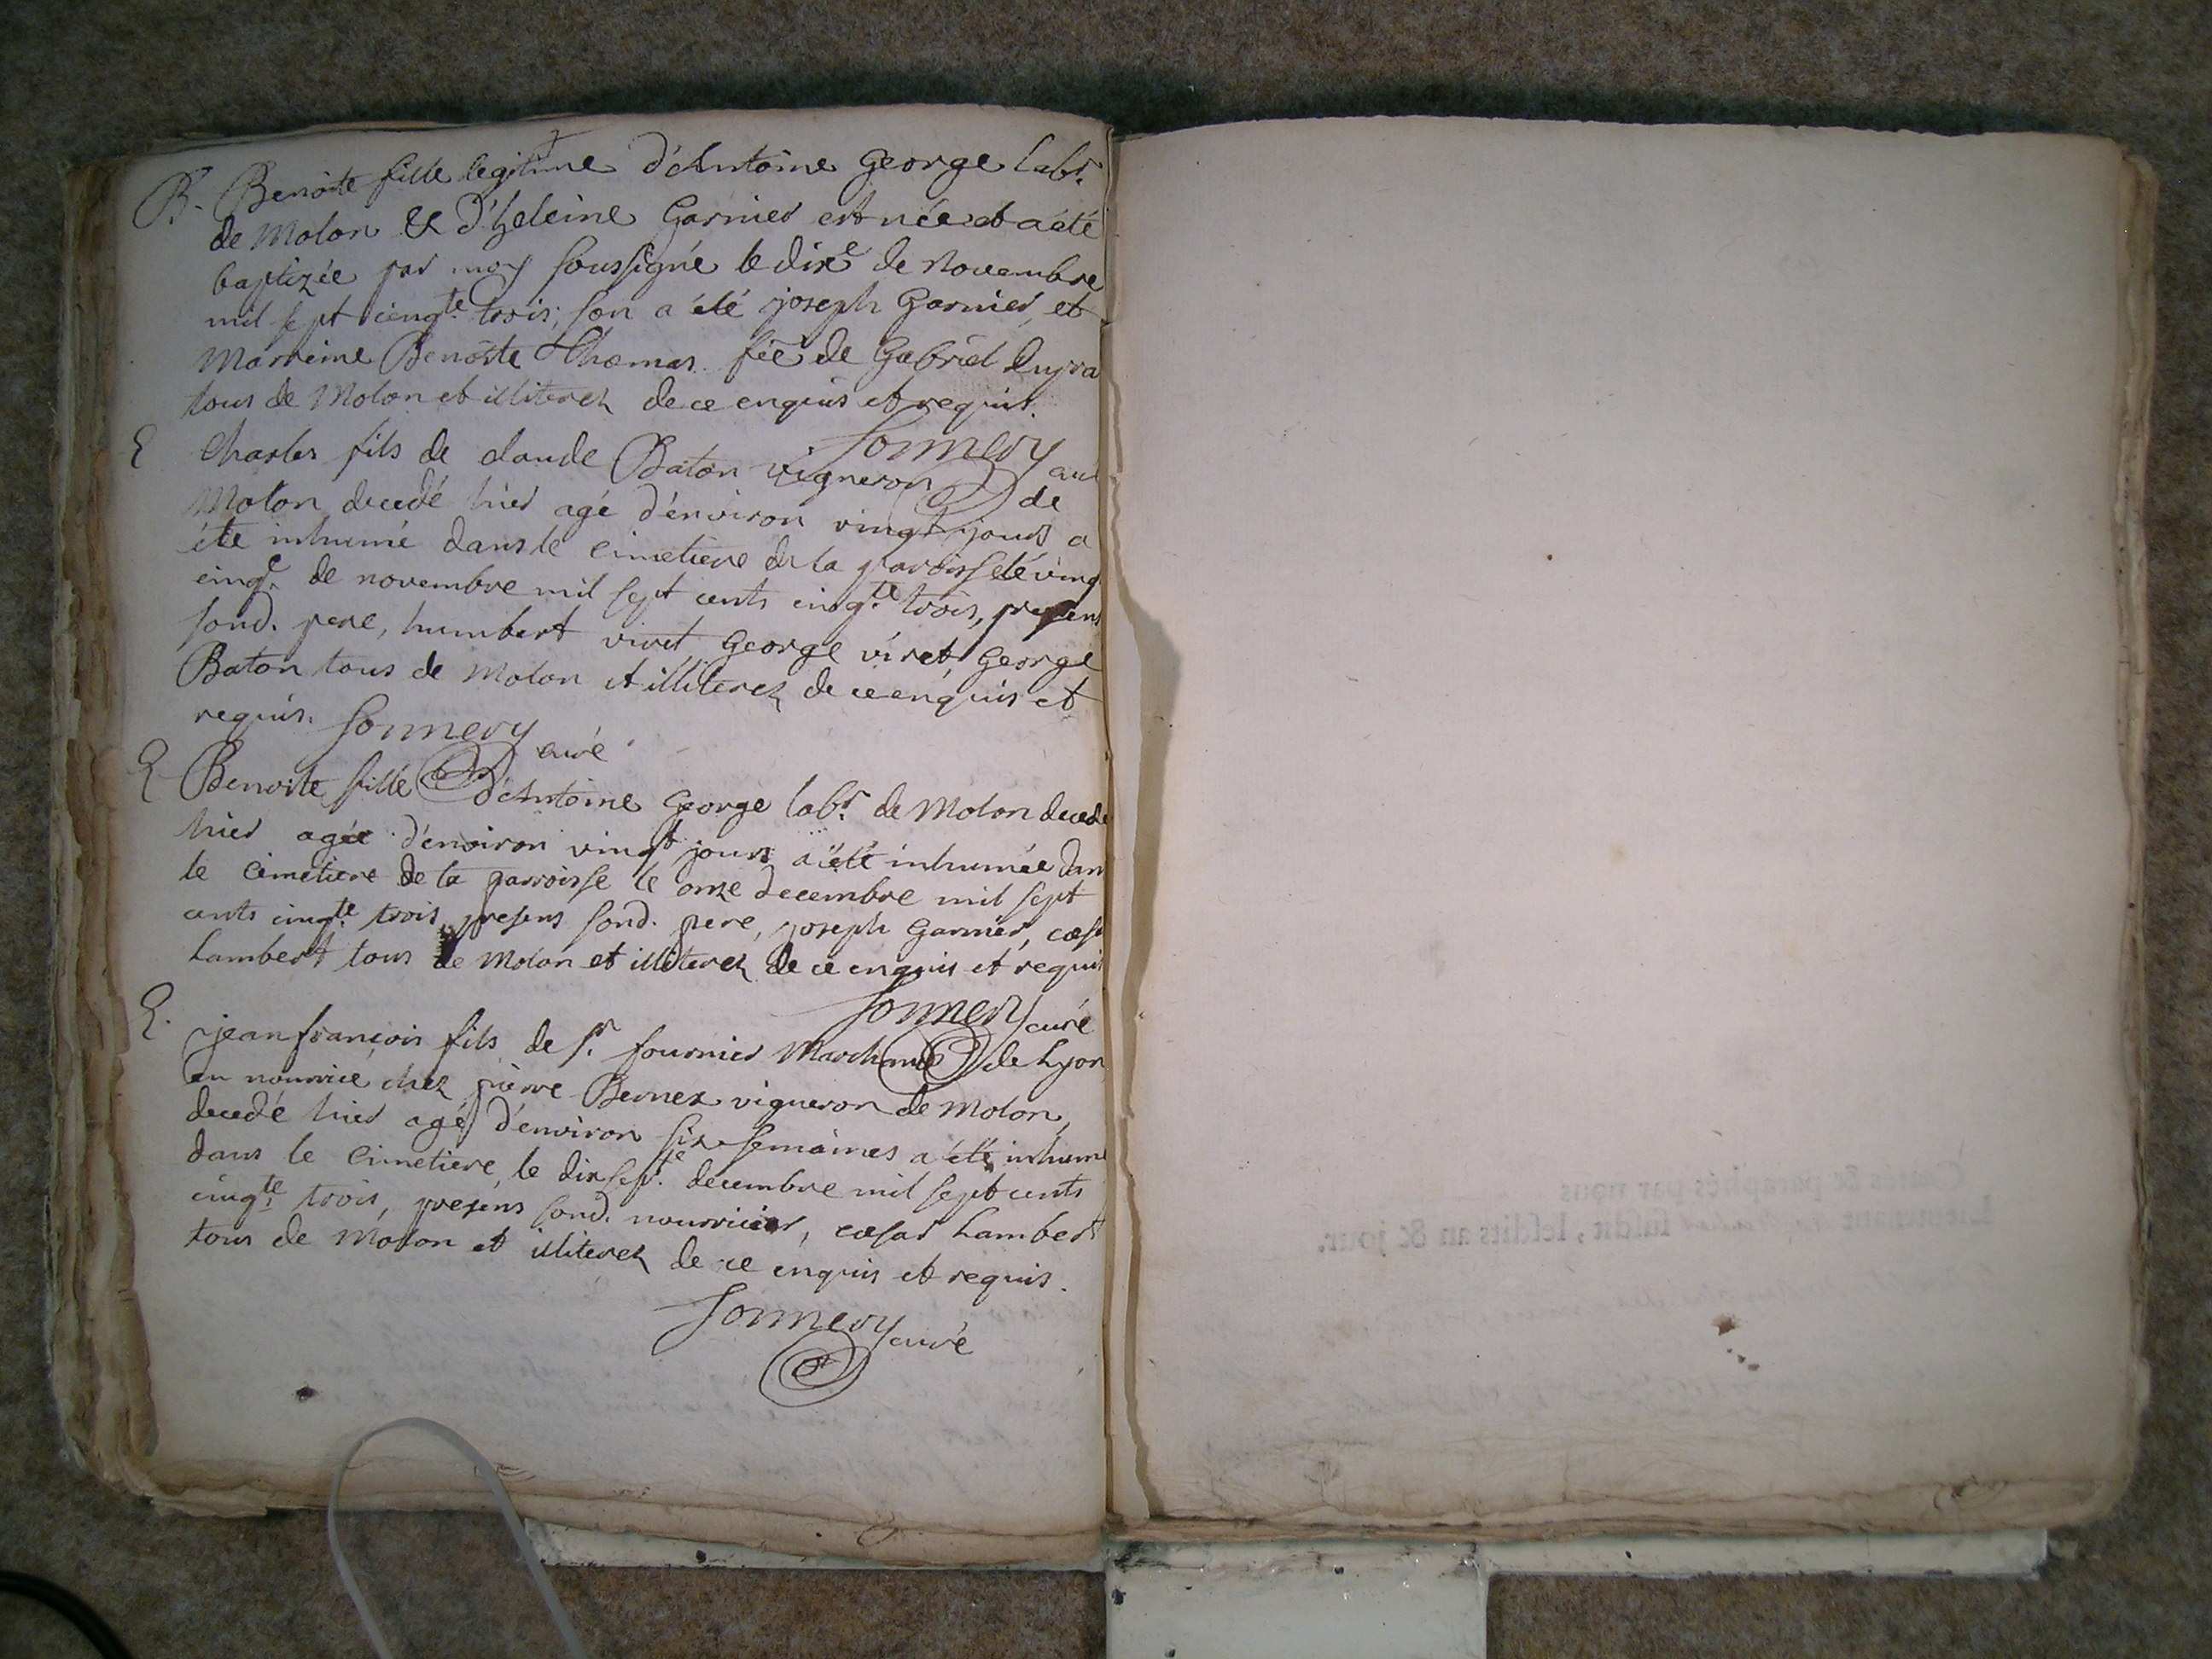 B. Benoite fille legitime d'Antoine George labr.
de Molon & d'heleine Garnier est née et a été
baptizée par moy soussigné le dixe de Novembre
mil sept cinqte. trois; son a été joseph Garnier, et
Marreine Benoite Thomas fée de Gabriel Dupra
tous de Molon et illiterez de ce enquis et requis.
Sonnery curé
E Charles fils de claude Baton vigneron de
Molon decedé hier agé d'environ vingt jours a
été inhumé dans le cimetiere de la parroisse le ving
cinqe. de novembre mil sept cents cinqte. trois, presens
sond. pere, humbert viret, George viret, George
Baton tous de Molon et illiterez de ce enquis et
requis. Sonnery curé
E Benoite fille d'Antoine George labr. de Molon decedé
hier agée d'environ vingt jours a été inhumée dan
le cimetiere de la parroisse le onze decembre mil sept
cents cinqte. trois, presens sond. pere, joseph Garnier, cæsa
Lambert tous de Molon et illiterez de ce enquis et requis
Sonnery curé
E. jean françois fils de sr. fournier Marchand de Lyon
en nourrice chez pierre Bernex vigneron de Molon,
decedé hier agé d'environ six semaines a été inhumé
dans le cimetiere, le dix septe. decembre mil sept cents
cinqte. trois, presens sond. nourricier, cæsar Lambert
tous de Molon et illiterez de ce enquis et requis.
Sonnery curé
Cottés & paraphés par nous
Lieutenant susdit, lesdits an & jour.